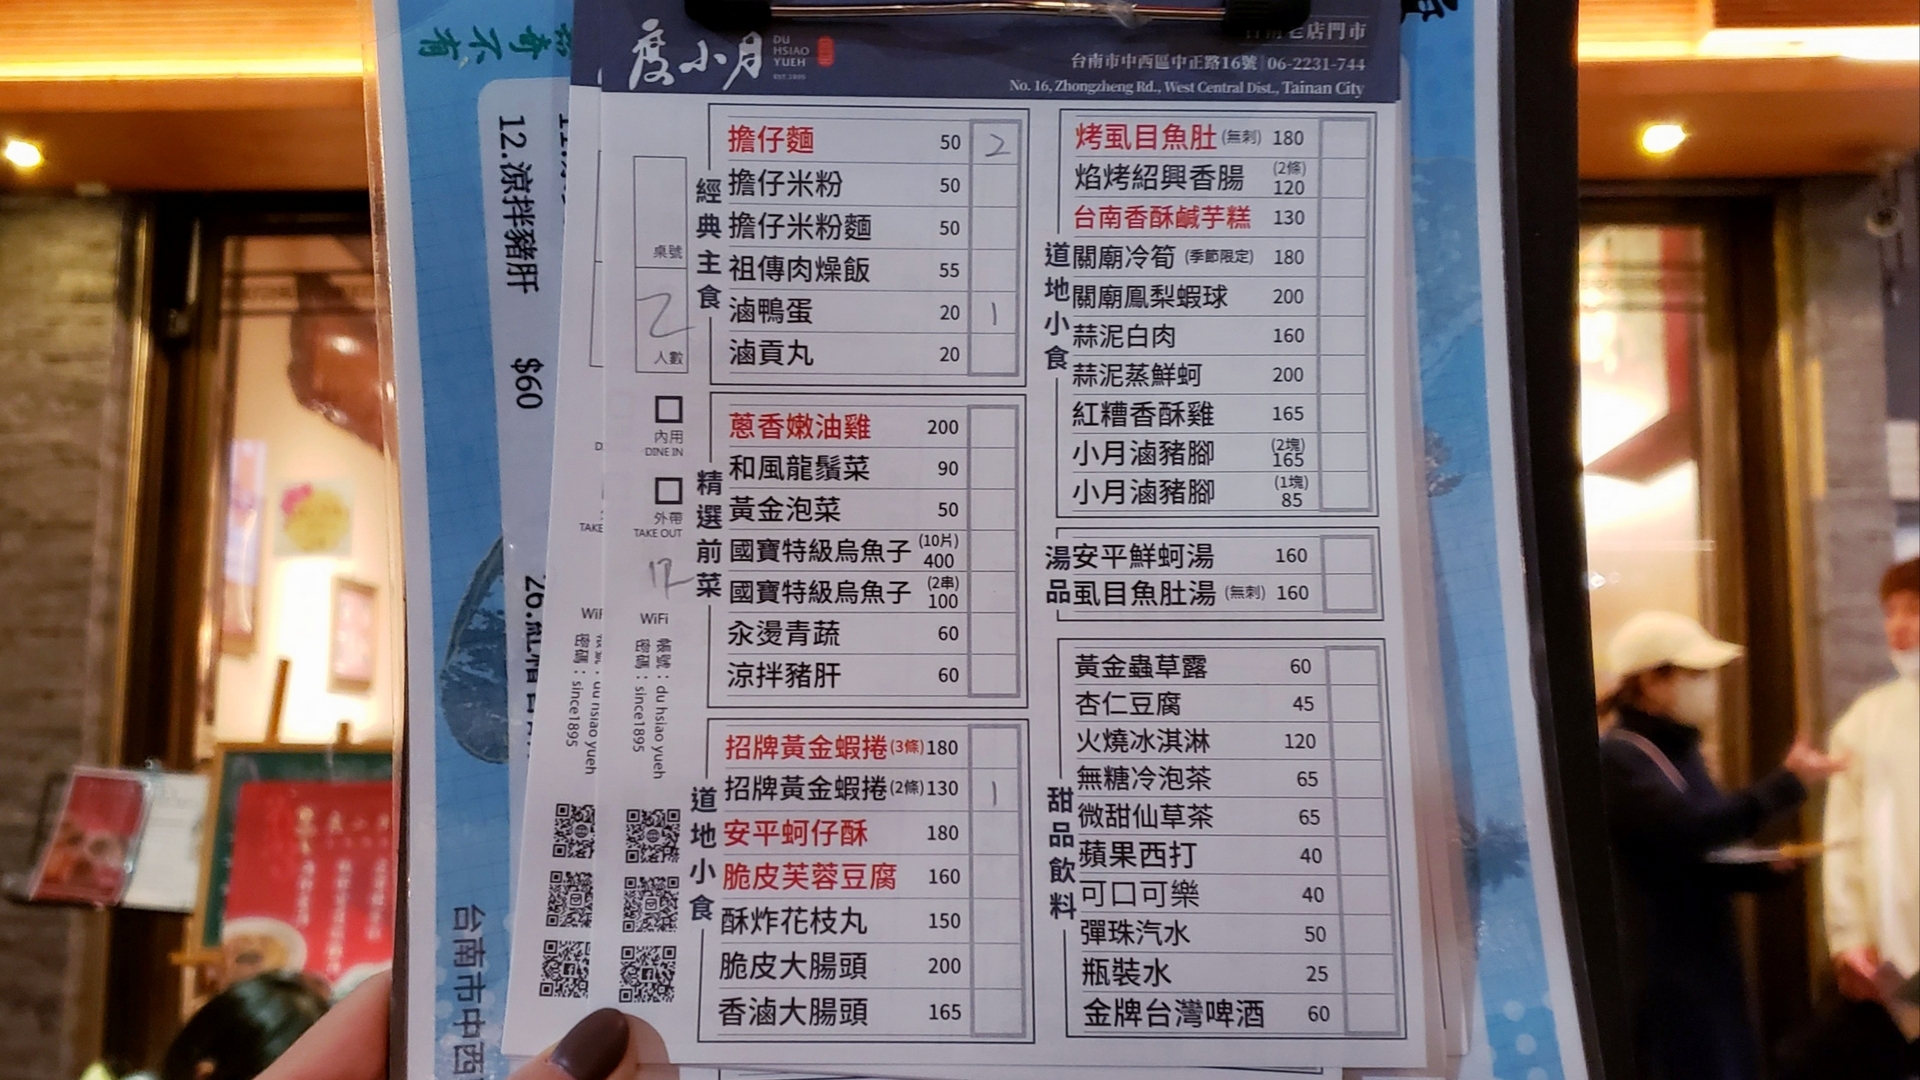 度小月
DU
HSIAO
YUEH
EST.1895
台南老店門市
台南市中西區中正路16號 | 06-2231-744
No. 16, Zhongzheng Rd., West Central Dist., Tainan City
桌號
2
人數
內用
DINE IN
外帶
TAKE OUT
WiFi
帳號：du hsiao yueh
密碼：since1895
經典主食
擔仔麵 50 2
擔仔米粉 50
擔仔米粉麵 50
祖傳肉燥飯 55
滷鴨蛋 20 1
滷貢丸 20
精選前菜
蔥香嫩油雞 200
和風龍鬚菜 90
黃金泡菜 50
國寶特級烏魚子 (10片) 400
國寶特級烏魚子 (2串) 100
汆燙青蔬 60
涼拌豬肝 60
道地小食
招牌黃金蝦捲(3條) 180
招牌黃金蝦捲(2條) 130 1
安平蚵仔酥 180
脆皮芙蓉豆腐 160
酥炸花枝丸 150
脆皮大腸頭 200
香滷大腸頭 165
道地小食
烤虱目魚肚(無刺) 180
焰烤紹興香腸 (2條) 120
台南香酥鹹芋糕 130
關廟冷筍 (季節限定) 180
關廟鳳梨蝦球 200
蒜泥白肉 160
蒜泥蒸鮮蚵 200
紅糟香酥雞 165
小月滷豬腳 (2塊) 165
小月滷豬腳 (1塊) 85
湯品
安平鮮蚵湯 160
虱目魚肚湯 (無刺) 160
甜品飲料
黃金蟲草露 60
杏仁豆腐 45
火燒冰淇淋 120
無糖冷泡茶 65
微甜仙草茶 65
蘋果西打 40
可口可樂 40
彈珠汽水 50
瓶裝水 25
金牌台灣啤酒 60
12.涼拌豬肝 $60
台南市中西
TAKE
WiF
du hsiao yueh
密碼：since1895